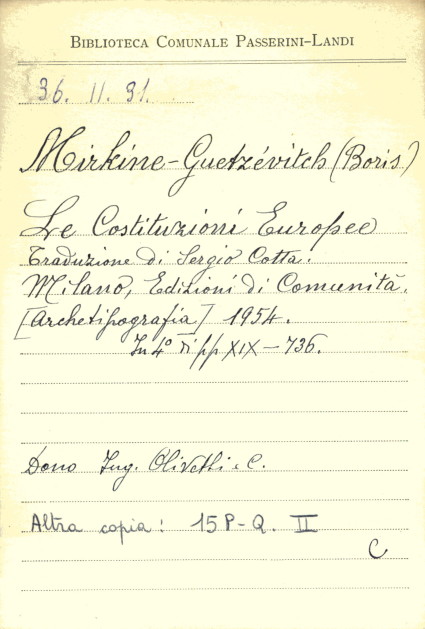 BIBLIOTECA COMUNALE PASSERINI-LANDI
36. II. 31.
Mirkine-Guetzévitch (Boris)
Le Costituzioni Europee
Traduzione di Sergio Cotta.
Milano, Edizioni di Comunità.
[Archetipografia] 1954.
In 4° di pp XIX-736.
Dono Ing. Olivetti e C.
Altra copia: 15 P-Q. II
C